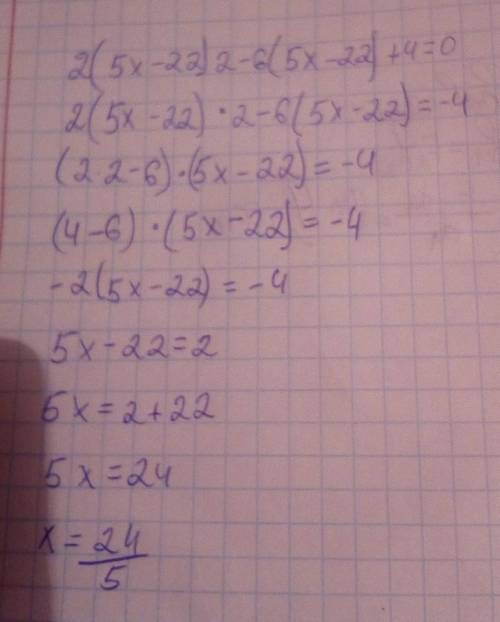 2(5x-22)2-6(5x-22)+4=0
2(5x-22)·2-6(5x-22)=-4
(2·2-6)·(5x-22)=-4
(4-6)·(5x-22)=-4
-2(5x-22)=-4
5x-22=2
5x=2+22
5x=24
x=24/5